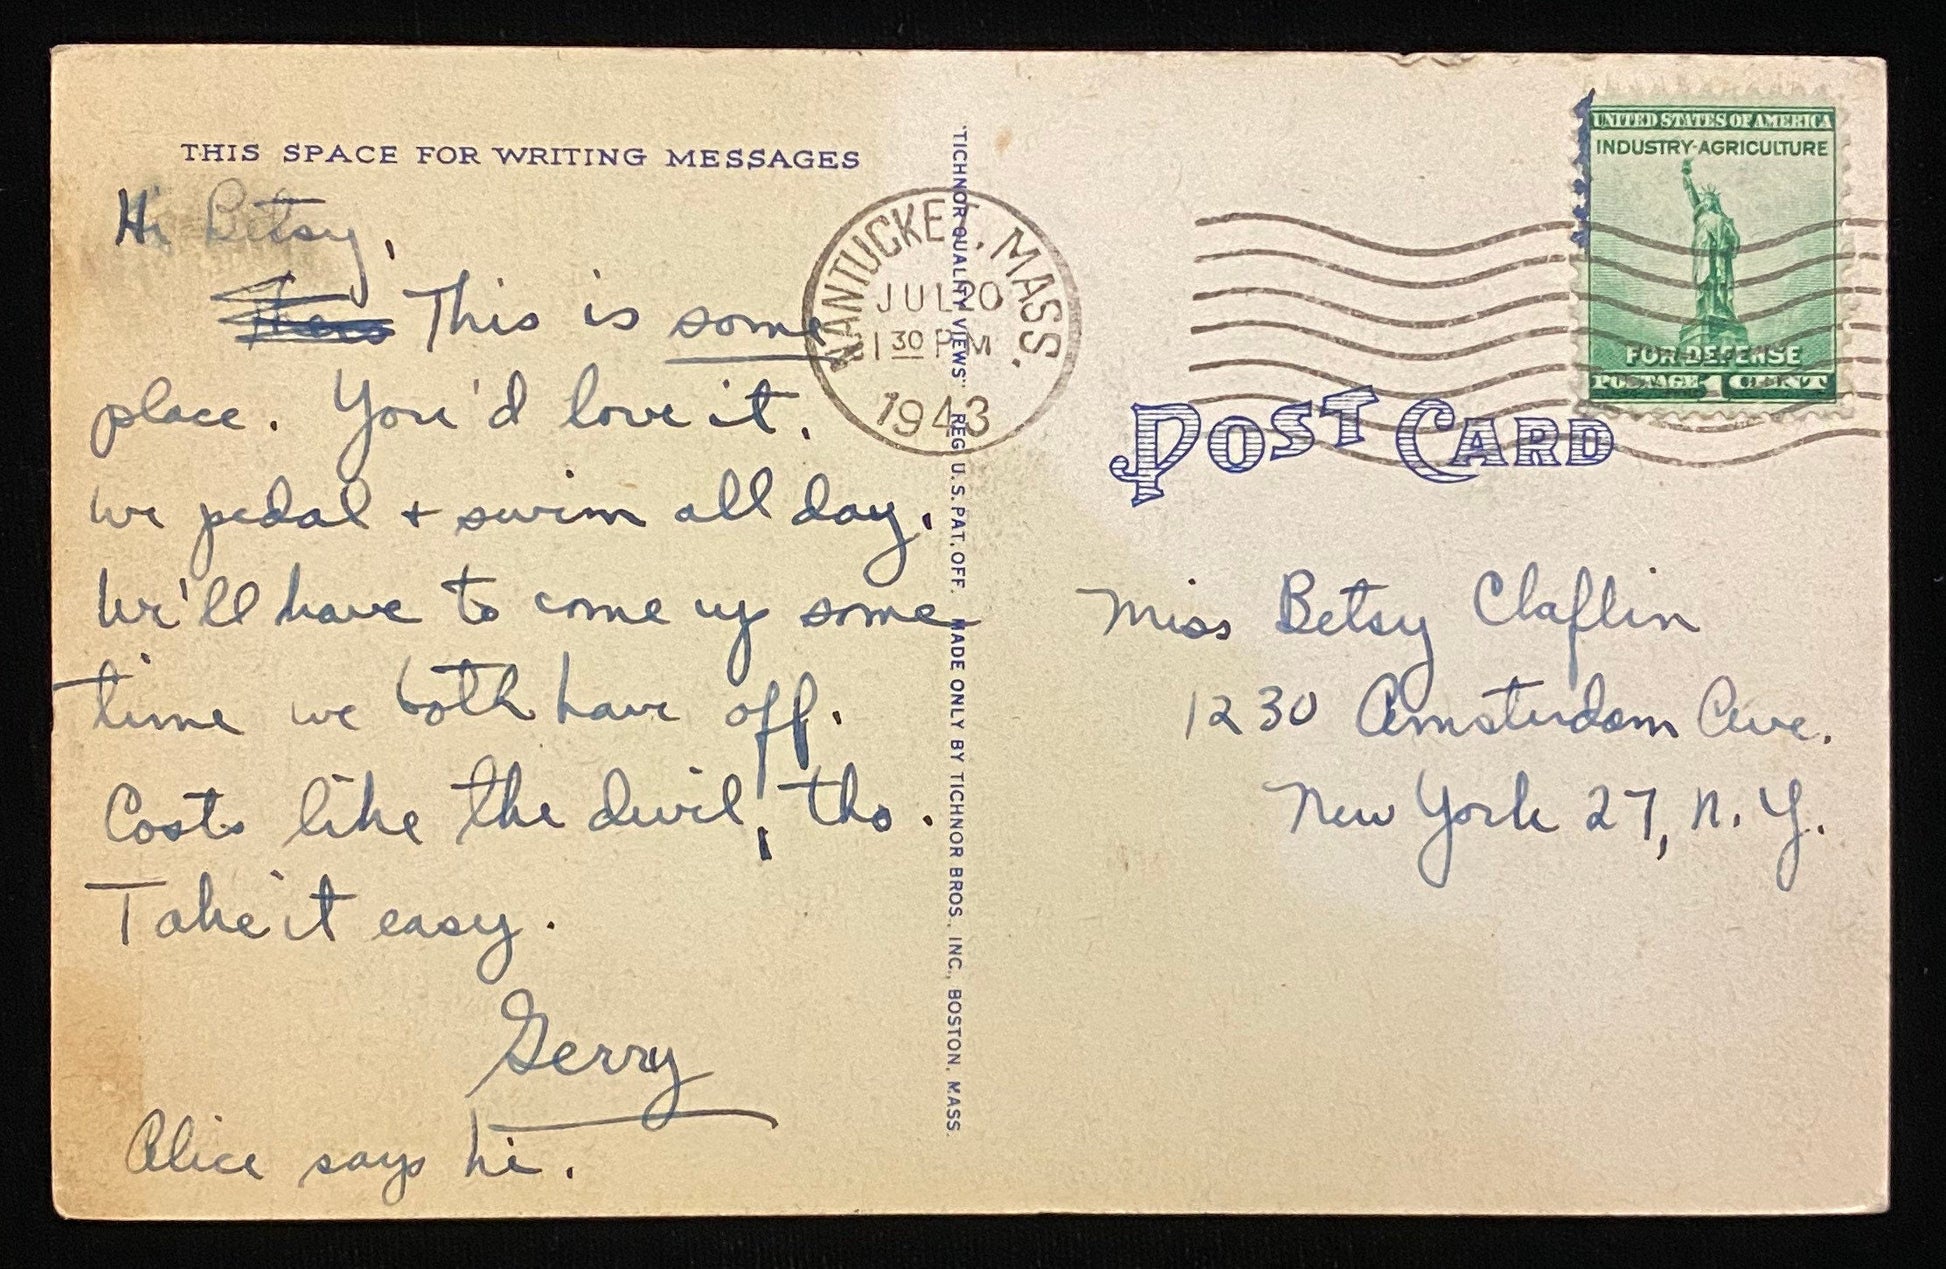 THIS SPACE FOR WRITING MESSAGES
Hi Betsy,
This is some
place. You'd love it.
We pedal + swim all day.
We'll have to come up some
time we both have off.
Costs like the devil, tho.
Take it easy.
Gerry
Alice says hi.
"TICHNOR QUALITY VIEWS" REG. U. S. PAT. OFF. MADE ONLY BY TICHNOR BROS. INC., BOSTON, MASS.
NANTUCKET, MASS.
JUL 20
1 30 PM
1943
UNITED STATES OF AMERICA
INDUSTRY-AGRICULTURE
FOR DEFENSE
POSTAGE 1 CENT
POST CARD
Miss Betsy Claflin
1230 Amsterdam Ave.
New York 27, N. Y.